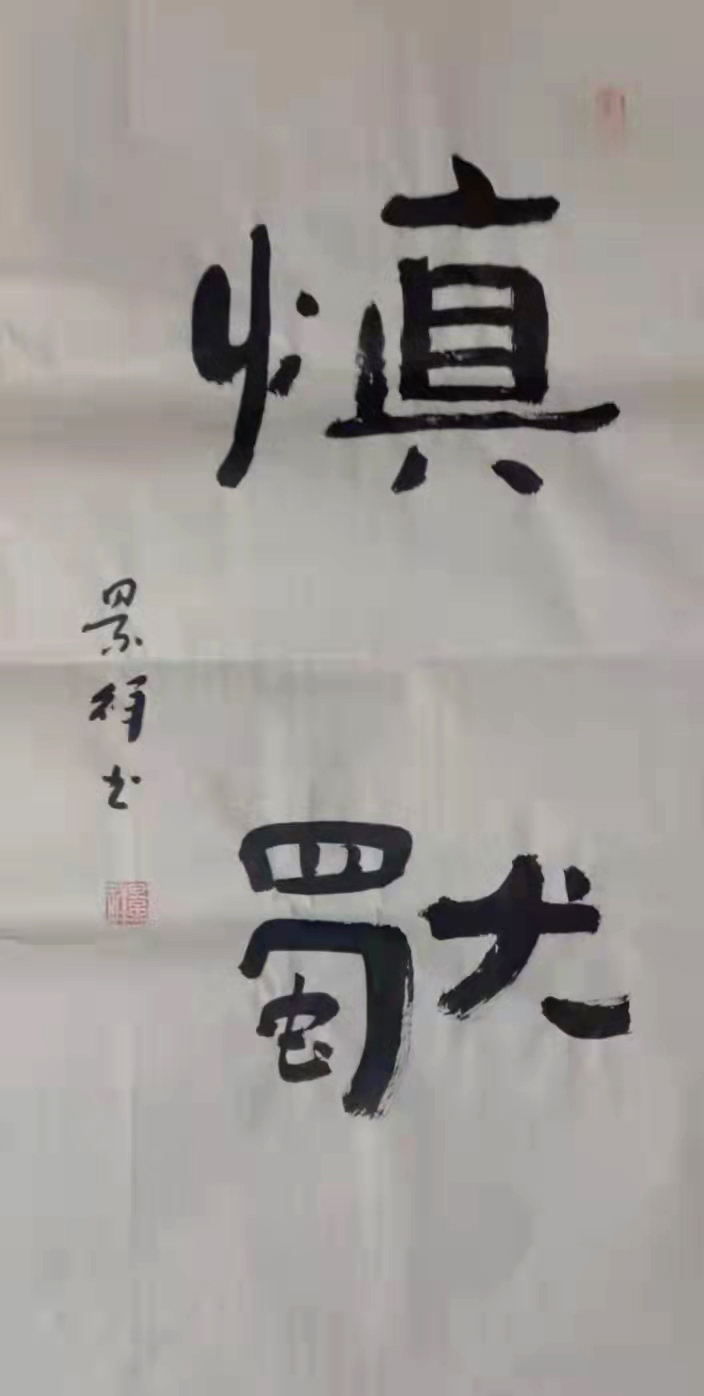 慎獨
景祥书